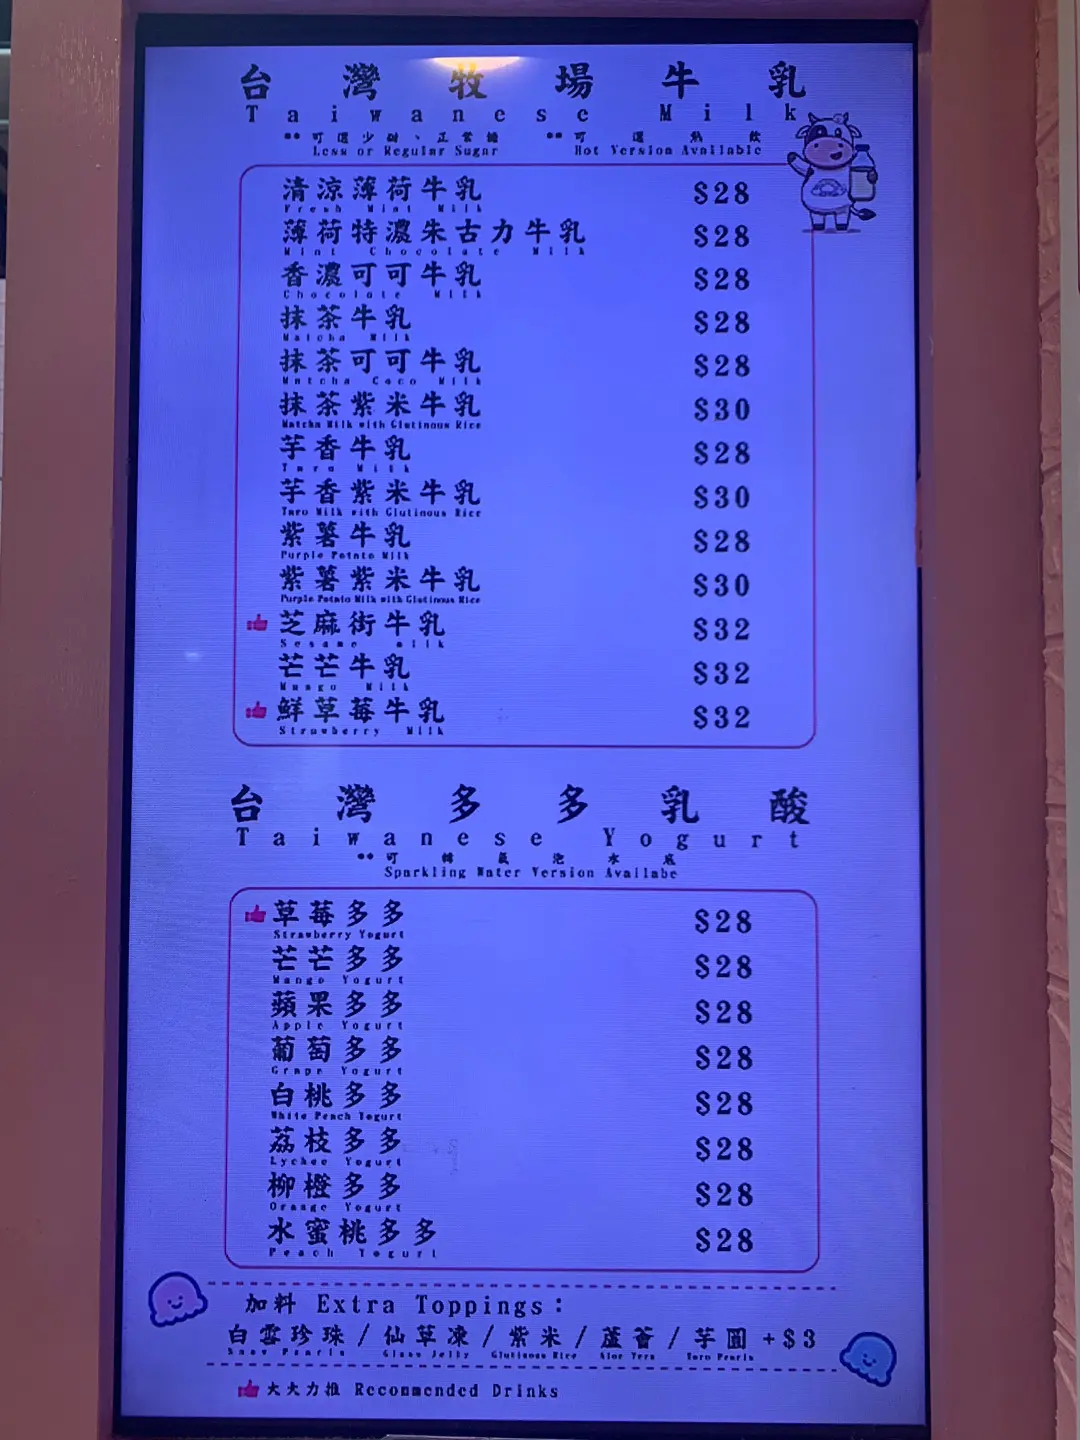 台灣牧場牛乳
Taiwanese Milk
** 可選少甜、正常糖 ** 可選熱飲
Less or Regular Sugar Hot Version Available
清涼薄荷牛乳 $28
Fresh Mint Milk
薄荷特濃朱古力牛乳 $28
Mint Chocolate Milk
香濃可可牛乳 $28
Chocolate Milk
抹茶牛乳 $28
Matcha Milk
抹茶可可牛乳 $28
Matcha Coco Milk
抹茶紫米牛乳 $30
Matcha Milk with Glutinous Rice
芋香牛乳 $28
Taro Milk
芋香紫米牛乳 $30
Taro Milk with Glutinous Rice
紫薯牛乳 $28
Purple Potato Milk
紫薯紫米牛乳 $30
Purple Potato Milk with Glutinous Rice
芝麻街牛乳 $32
Sesame milk
芒芒牛乳 $32
Mango Milk
鮮草莓牛乳 $32
Strawberry Milk
台灣多多乳酸
Taiwanese Yogurt
** 可轉氣泡水底
Sparkling Water Version Availabe
草莓多多 $28
Strawberry Yogurt
芒芒多多 $28
Mango Yogurt
蘋果多多 $28
Apple Yogurt
葡萄多多 $28
Grape Yogurt
白桃多多 $28
White Peach Yogurt
荔枝多多 $28
Lychee Yogurt
柳橙多多 $28
Orange Yogurt
水蜜桃多多 $28
Peach Yogurt
加料 Extra Toppings：
白雲珍珠/仙草凍/紫米/蘆薈/芋圓 +$3
Snow Pearls Glass Jelly Glutinous Rice Aloe Vera Taro Pearls
大大力推 Recommended Drinks